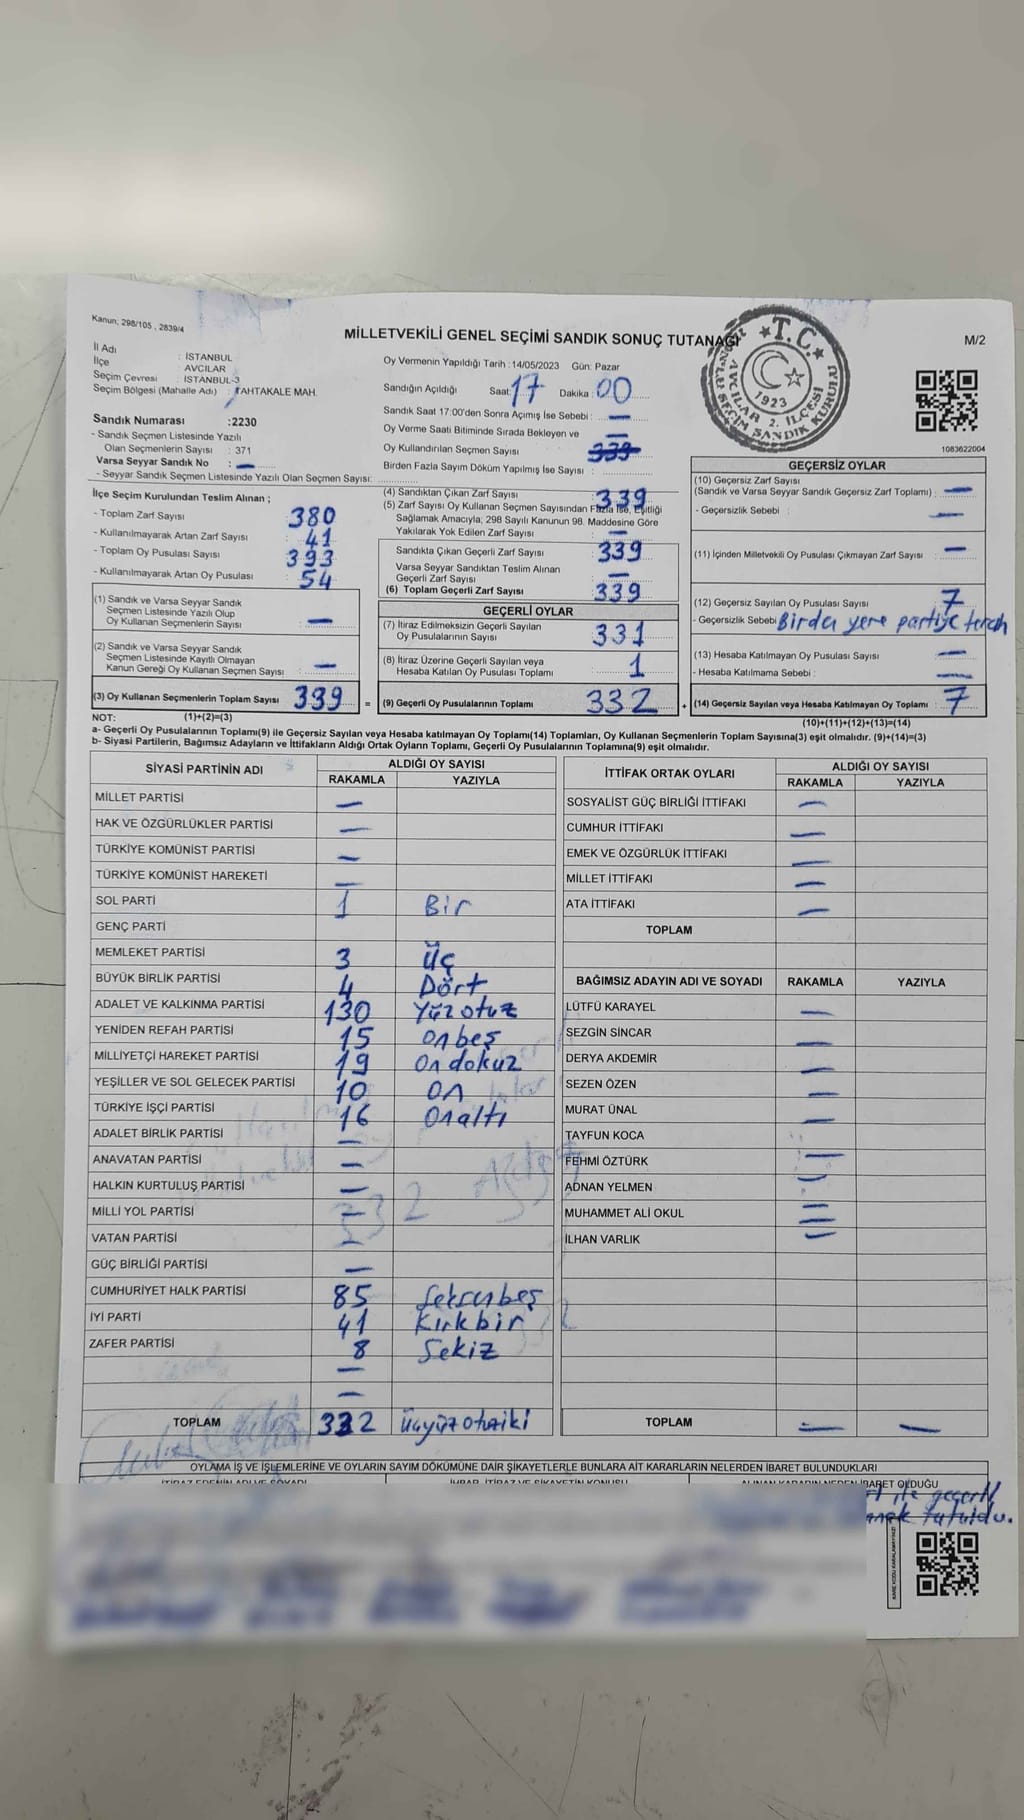 Kanun; 298/105 , 2839/4
MİLLETVEKİLİ GENEL SEÇİMİ SANDIK SONUÇ TUTANAĞI
M/2
İl Adı : İSTANBUL
İlçe AVCILAR
Seçim Çevresi : İSTANBUL-3
Seçim Bölgesi (Mahalle Adı) : TAHTAKALE MAH.
Sandık Numarası :2230
- Sandık Seçmen Listesinde Yazılı
Olan Seçmenlerin Sayısı : 371
Varsa Seyyar Sandık No : —
- Seyyar Sandık Seçmen Listesinde Yazılı Olan Seçmen Sayısı:
Oy Vermenin Yapıldığı Tarih :14/05/2023 Gün: Pazar
Sandığın Açıldığı Saat: 17 Dakika: 00
Sandık Saat 17:00'den Sonra Açımış İse Sebebi : —
Oy Verme Saati Bitiminde Sırada Bekleyen ve —
Oy Kullandırılan Seçmen Sayısı 339
Birden Fazla Sayım Döküm Yapılmış İse Sayısı :
T.C.
1923
AVCILAR 2. İLÇESİ
SEÇİM SANDIK KURULU
1083622004
İlçe Seçim Kurulundan Teslim Alınan ;
- Toplam Zarf Sayısı 380
- Kullanılmayarak Artan Zarf Sayısı : 41
- Toplam Oy Pusulası Sayısı : 393
- Kullanılmayarak Artan Oy Pusulası : 54
(1) Sandık ve Varsa Seyyar Sandık
Seçmen Listesinde Yazılı Olup
Oy Kullanan Seçmenlerin Sayısı : —
(2) Sandık ve Varsa Seyyar Sandık
Seçmen Listesinde Kayıtlı Olmayan
Kanun Gereği Oy Kullanan Seçmen Sayısı : —
(3) Oy Kullanan Seçmenlerin Toplam Sayısı : 339 =
(4) Sandıktan Çıkan Zarf Sayısı : 339
(5) Zarf Sayısı Oy Kullanan Seçmen Sayısından Fazla İse, Eşitliği
Sağlamak Amacıyla, 298 Sayılı Kanunun 98. Maddesine Göre
Yakılarak Yok Edilen Zarf Sayısı : —
Sandıkta Çıkan Geçerli Zarf Sayısı : 339
Varsa Seyyar Sandıktan Teslim Alınan
Geçerli Zarf Sayısı : —
(6) Toplam Geçerli Zarf Sayısı : 339
GEÇERLİ OYLAR
(7) İtiraz Edilmeksizin Geçerli Sayılan
Oy Pusulalarının Sayısı : 331
(8) İtiraz Üzerine Geçerli Sayılan veya
Hesaba Katılan Oy Pusulası Toplamı : 1
(9) Geçerli Oy Pusulalarının Toplamı : 332 +
GEÇERSİZ OYLAR
(10) Geçersiz Zarf Sayısı
(Sandık ve Varsa Seyyar Sandık Geçersiz Zarf Toplamı) : —
- Geçersizlik Sebebi : —
(11) İçinden Milletvekili Oy Pusulası Çıkmayan Zarf Sayısı : —
(12) Geçersiz Sayılan Oy Pusulası Sayısı : 7
- Geçersizlik Sebebi Birden yere partiye tercih
(13) Hesaba Katılmayan Oy Pusulası Sayısı : —
- Hesaba Katılmama Sebebi : —
(14) Geçersiz Sayılan veya Hesaba Katılmayan Oy Toplamı : 7
NOT: (1)+(2)=(3)
(10)+(11)+(12)+(13)=(14)
a- Geçerli Oy Pusulalarının Toplamı(9) ile Geçersiz Sayılan veya Hesaba katılmayan Oy Toplamı(14) Toplamları, Oy Kullanan Seçmenlerin Toplam Sayısına(3) eşit olmalıdır. (9)+(14)=(3)
b- Siyasi Partilerin, Bağımsız Adayların ve İttifakların Aldığı Ortak Oyların Toplamı, Geçerli Oy Pusulalarının Toplamına(9) eşit olmalıdır.
SİYASİ PARTİNİN ADI ALDIĞI OY SAYISI
RAKAMLA YAZIYLA
MİLLET PARTİSİ —
HAK VE ÖZGÜRLÜKLER PARTİSİ —
TÜRKİYE KOMÜNİST PARTİSİ —
TÜRKİYE KOMÜNİST HAREKETİ —
SOL PARTİ 1 Bir
GENÇ PARTİ
MEMLEKET PARTİSİ 3 Üç
BÜYÜK BİRLİK PARTİSİ 4 Dört
ADALET VE KALKINMA PARTİSİ 130 Yüzotuz
YENİDEN REFAH PARTİSİ 15 onbeş
MİLLİYETÇİ HAREKET PARTİSİ 19 ondokuz
YEŞİLLER VE SOL GELECEK PARTİSİ 10 on
TÜRKİYE İŞÇİ PARTİSİ 16 Onaltı
ADALET BİRLİK PARTİSİ —
ANAVATAN PARTİSİ —
HALKIN KURTULUŞ PARTİSİ —
MİLLİ YOL PARTİSİ —
VATAN PARTİSİ —
GÜÇ BİRLİĞİ PARTİSİ —
CUMHURİYET HALK PARTİSİ 85 Seksenbeş
İYİ PARTİ 41 Kırkbir
ZAFER PARTİSİ 8 Sekiz
—
—
TOPLAM 332 Üçyüzotuziki
İTTİFAK ORTAK OYLARI ALDIĞI OY SAYISI
RAKAMLA YAZIYLA
SOSYALİST GÜÇ BİRLİĞİ İTTİFAKI —
CUMHUR İTTİFAKI —
EMEK VE ÖZGÜRLÜK İTTİFAKI —
MİLLET İTTİFAKI —
ATA İTTİFAKI —
TOPLAM
BAĞIMSIZ ADAYIN ADI VE SOYADI RAKAMLA YAZIYLA
LÜTFÜ KARAYEL —
SEZGİN SİNCAR —
DERYA AKDEMİR —
SEZEN ÖZEN —
MURAT ÜNAL —
TAYFUN KOCA
FEHMİ ÖZTÜRK —
ADNAN YELMEN —
MUHAMMET ALİ OKUL —
İLHAN VARLIK —
TOPLAM — —
OYLAMA İŞ VE İŞLEMLERİNE VE OYLARIN SAYIM DÖKÜMÜNE DAİR ŞİKAYETLERLE BUNLARA AİT KARARLARIN NELERDEN İBARET BULUNDUKLARI
İTİRAZ EDENİN ADI VE SOYADI İHBAR, İTİRAZ VE ŞİKAYETİN KONUSU ALINAN KARARIN NEDEN İBARET OLDUĞU
ile geçerli
tutuldu.